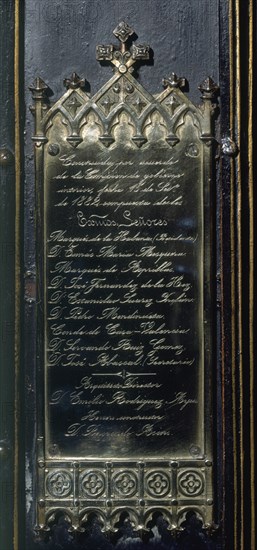 Construida por acuerdo
de la Comisión de gobierno
interior, fecha 15 de
de 1882, compuesta de los
Exmos. Señores
Marqués de la Habana, (Presidente)
D. Tomás María Mosquera
Marqués de
D. José Fernandez de la Hoz
D. Estanislao Suarez Inclán
D. Pedro Mendinueta
Conde de Casa-Valencia
D. Servando Ruiz Gomez
D. José Abascal (Secretario)
Arquitecto Director
D. Emilio Rodriguez Ayuso
Herrero constructor
D. Bernardo